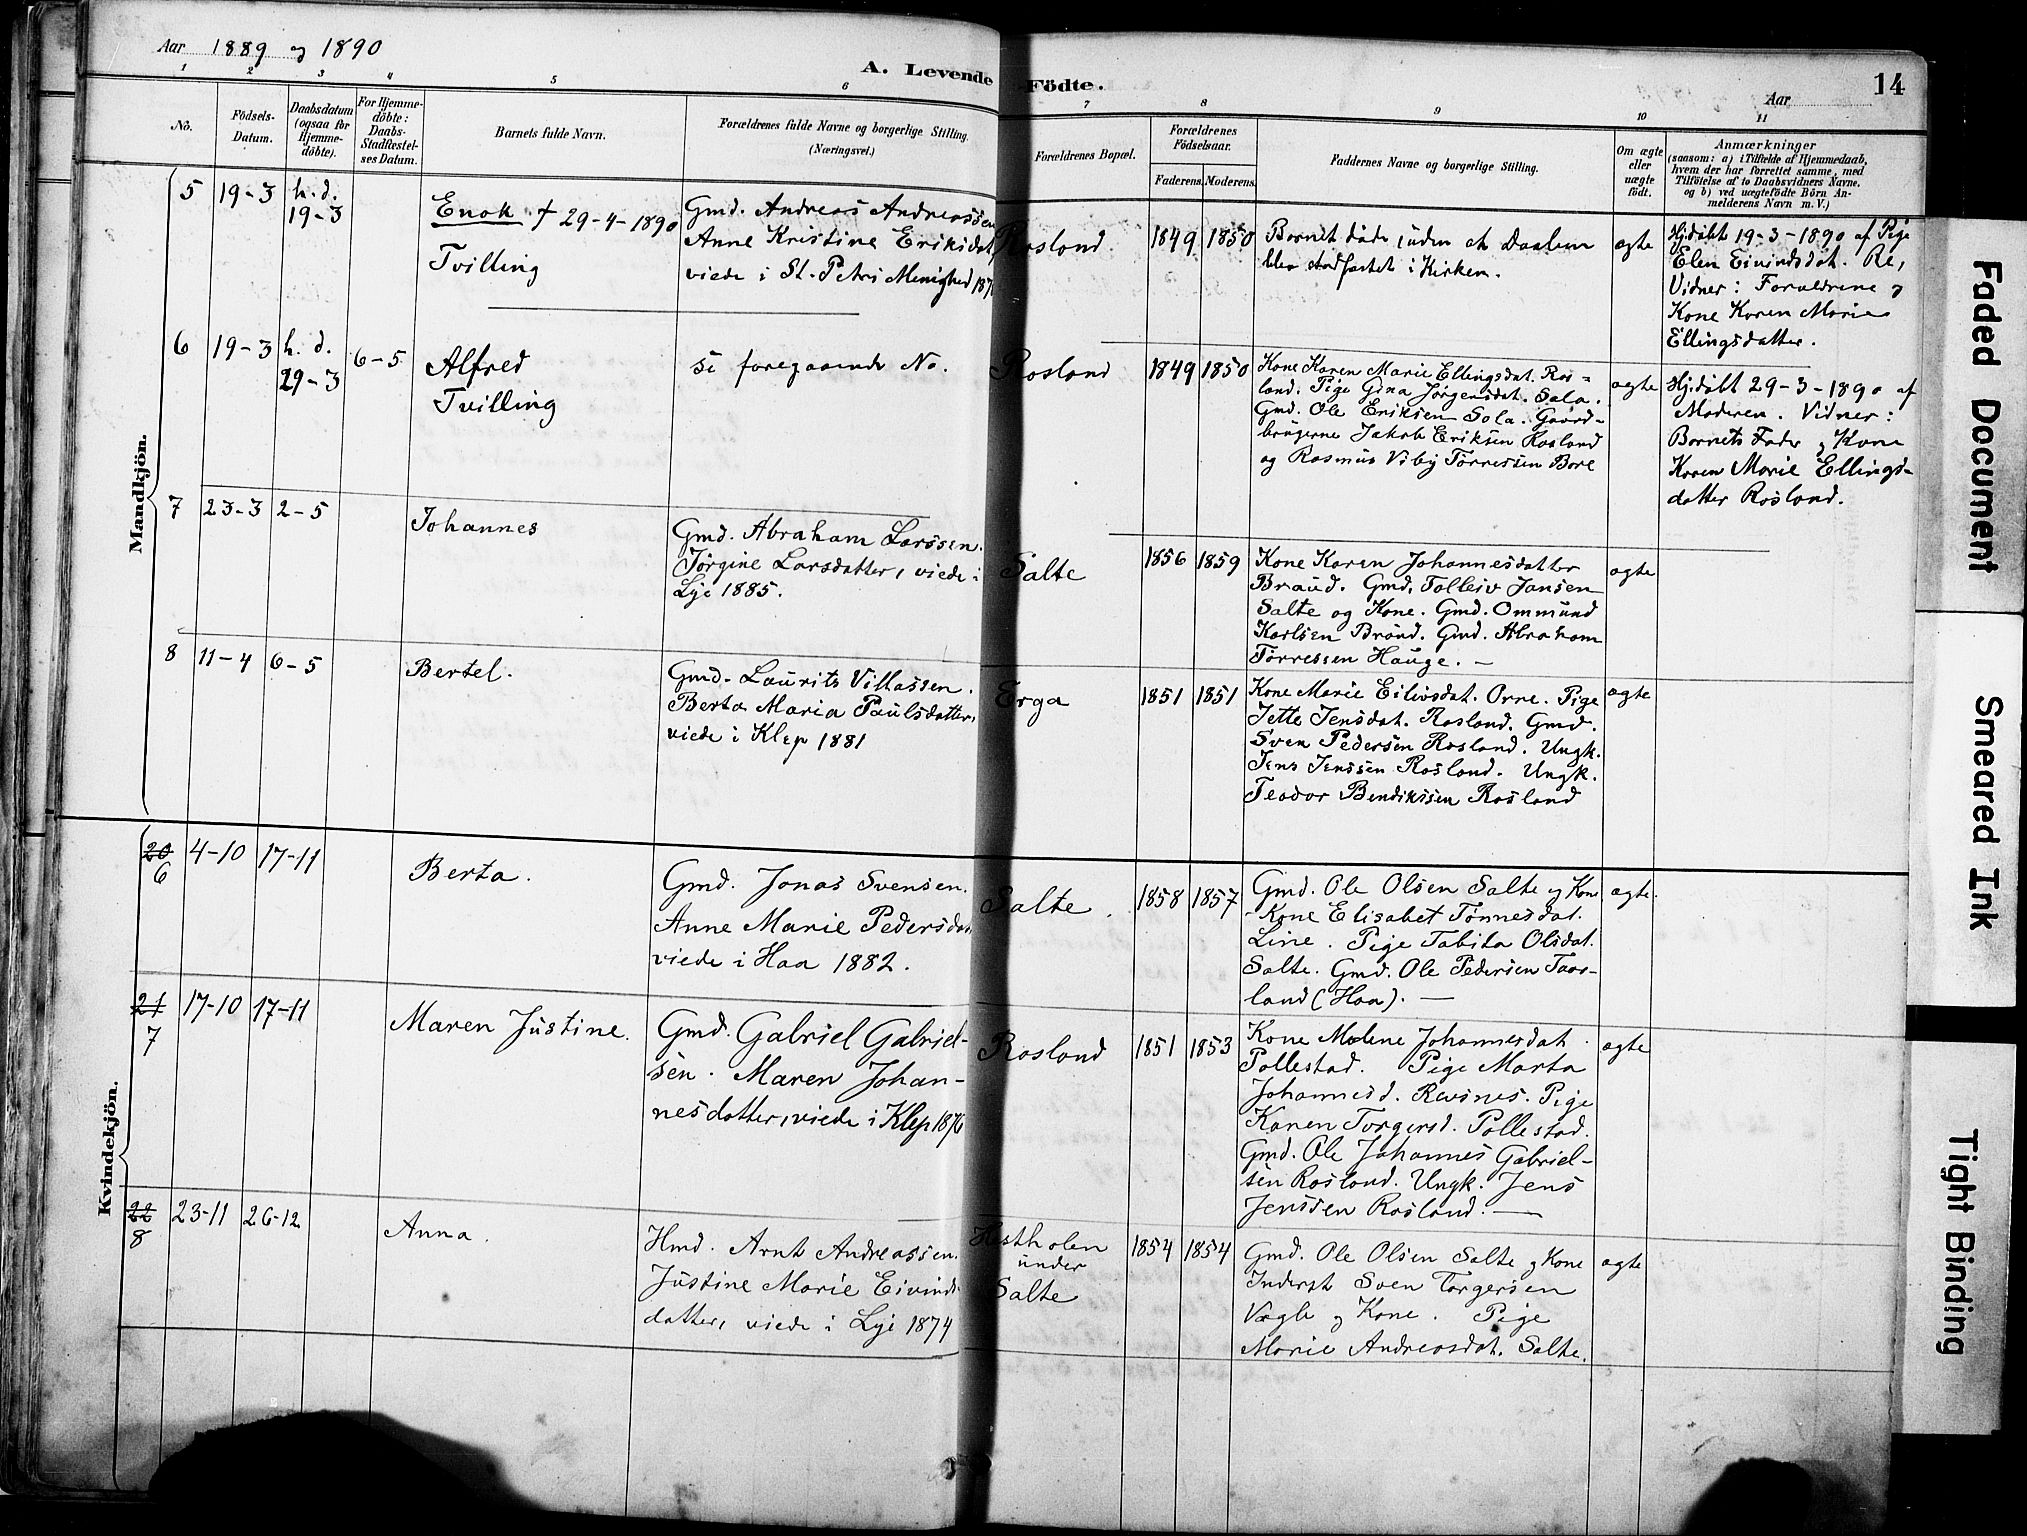 Aar 1889 og 1890
A. Levende Födte.
Aar
14
1 2 3 4 5 6 7 8 9 10 11
No.
Födsels-Datum.
Daabsdatum (ogsaa for Hjemme-döbte).
For Hjemme-döbte: Daabs-Stadfæstel-ses Datum.
Barnets fulde Navn.
Forældrenes fulde Navne og borgerlige Stilling. (Næringsvei.)
Forældrenes Bopæl.
Forældrenes Födselsaar.
Faderens. Moderens.
Faddernes Navne og borgerlige Stilling.
Om ægte eller uægte födt.
Anmærkninger
(saasom: a) i Tilfælde af Hjemmedaab,
hvem der har forrettet samme, med
Tilföielse af to Daabsvidners Navne,
og b) ved uægtefödte Börn An-
melderens Navn m. V.)
Mandkjön.
5 19-3 h. d. 19-3
Enok † 29-4-1890
Tvilling
Gmd. Andreas Andreassen
Anne Kristine Eriksdat
viede i St. Petri Menighed
Rosland. 1849 1850
Barnet døde, uden at Daaben
blev stadfæstet i Kirken.
ægte
Hj.døbt 19-3-1890 af Pige
Elen Eivindsdat. Re,
Vidner: Forældrene og
Kone Karen Marie
Ellingsdatter.
6 19-3 h. d. 29-3 6-5
Alfred
Tvilling
se foregaaende No.
Rosland 1849 1850
Kone Karen Marie Ellingsdat. Ros-
land. Pige Gina Jørgensdat. Sola.
Gmd. Ole Eriksen Sola. Gaard-
brugerne Jakob Eriksen Rosland
og Rasmus Viby Tørressen Bore
ægte
Hj.døbt 29-3-1890 af
Moderen. Vidner:
Barnets Fader og Kone
Karen Marie Ellings-
datter Rosland.
7 23-3 2-5
Johannes
Gmd. Abraham Larssen.
Jørgine Larsdatter, viede i
Lye 1885.
Salte 1856 1859
Kone Karen Johannesdatter
Braud. Gmd. Tolleiv Jansen
Salte og Kone. Gmd. Ommund
Karlsen Brond. Gmd. Abraham
Tørressen Hauge. —
ægte
8 11-4 6-5
Bertel.
Gmd. Laurits Villassen.
Berta Maria Paulsdatter,
viede i Klep 1881
Erga 1851 1851
Kone Marie Eilivsdat. Orre. Pige
Jette Jensdat. Rosland. Gmd.
Sven Pedersen Rosland. Ungk.
Jens Jenssen Rosland. Ungk.
Teodor Bendikssen Rosland
ægte
Kvindekjön.
20 6 4-10 17-11
Berta.
Gmd. Jonas Svensen.
Anne Marie Pedersdat
viede i Haa 1882.
Salte. 1858 1857
Gmd. Ole Olsen Salte og Kone
- Kone Elisabet Tønnesdat.
Line. Pige Tabita Olsdat.
Salte. Gmd. Ole Pedersen Taas-
land (Haa). —
ægte.
21 7 17-10 17-11
Maren Justine.
Gmd. Gabriel Gabriel-
sen. Maren Johan-
nesdatter, viede i Klep 1876
Rosland 1851 1853
Kone Malene Johannesdat.
Pollestad. Pige Marta
Johannesd. Revsnes. Pige
Karen Torgersd. Pollestad.
Gmd. Ole Johannes Gabriel-
sen Rosland. Ungk. Jens
Jenssen Rosland. —
ægte
22 8 23-11 26-12
Anna.
Hmd. Arnt Andreassen.
Justine Marie Eivinds-
datter, viede i Lye 1874
Hestholen
under
Salte
1854 1854
Gmd. Ole Olsen Salte og Kone
Inderst Sven Torgersen
Vagle og Kone. Pige
Marie Andreasdat. Salte.
ægte
Faded Document
Smeared Ink
Tight Binding